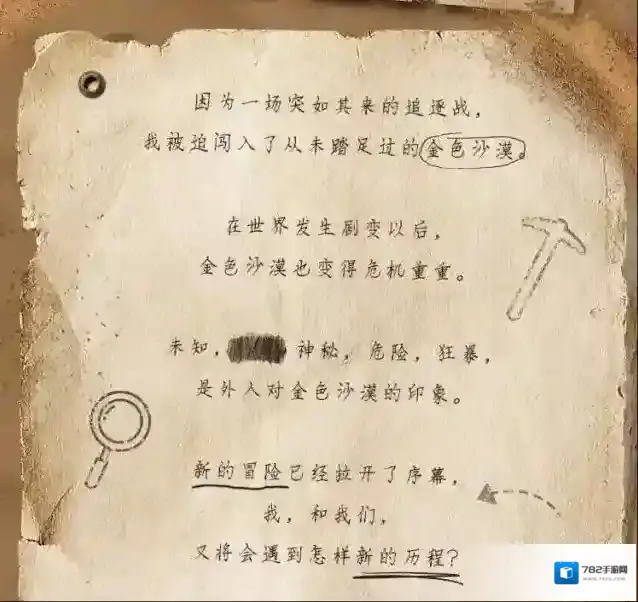 因为一场突如其来的追逐战，
我被迫闯入了从未踏足过的金色沙漠。
在世界发生剧变以后，
金色沙漠也变得危机重重。
未知，神秘，危险，狂暴，
是外人对金色沙漠的印象。
新的冒险已经拉开了序幕，
我，和我们，
又将会遇到怎样新的历程？
782手游网